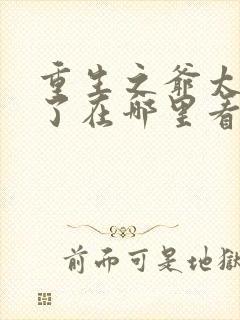 重生之爷太
了在哪里看
前而可是地狱